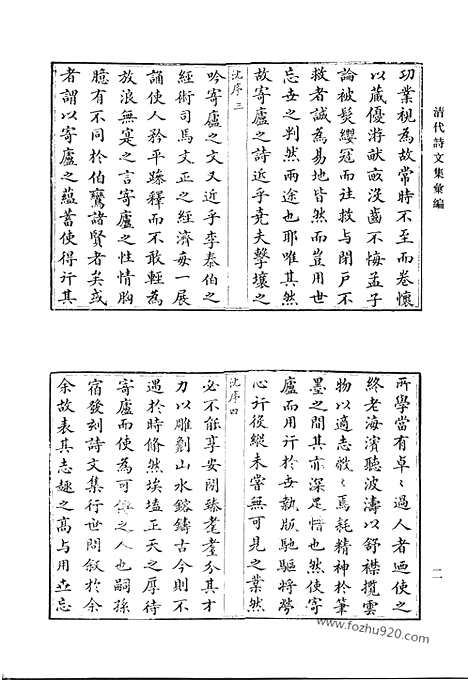 清代詩文集彙編
功業視為故常時不至而卷懷
以藏優游畎畝沒齒不悔孟子
論被髮纓冠而往救與閉戶不
救者誠為易地皆然而豈用世
忘世之判然兩途也耶唯其然
故寄廬之詩近乎堯夫擊壤之
沈序 三
吟寄廬之文又近乎李泰伯之
經術司馬文正之經濟每一展
誦使人矜平躁釋而不敢輕為
放浪無宴之言寄廬之性情胸
臆有不同於伯鸞諸賢者矣或
者謂以寄廬之蘊蓄使得行其
所學當有卓〻過人者迺使之
終老海濱聽波濤以舒襟攬雲
物以適志敝〻焉耗精神於筆
墨之間其亦深足惜也然使寄
廬而用行於世執版馳驅將勞
心行役縱未嘗無可見之業然
沈序 四
必不能享安閒臻耄耋分其才
力以雕劖山水鎔鑄古今則不
遇於時翛然埃壒正天之厚待
寄廬而使為可傳之人也嗣孫
宿發刻詩文集行世問叙於余
余故表其志趣之高與用世忘
一一
www.fozhu920.com